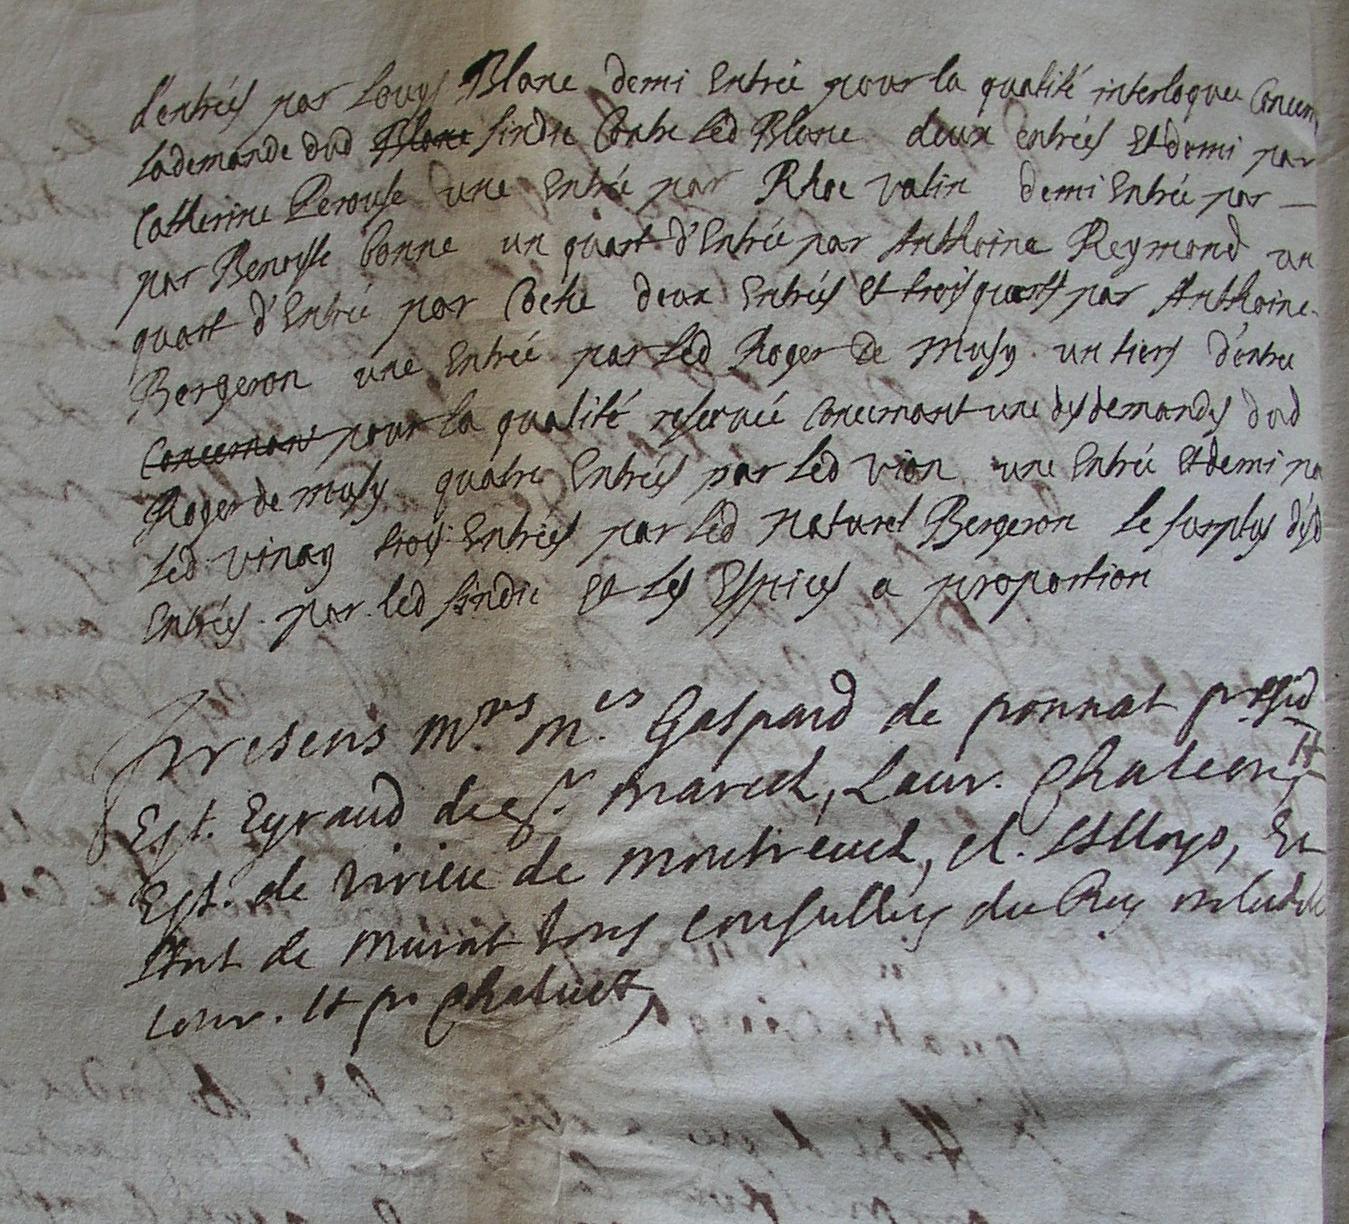 d'entrées par Louys Blanc demi Entrée pour la qualité interloquee Concern
La demande dud Blanc sindic Contre Led Blanc deux entrées Et demi par
Catherine Perouse une Entrée par Rhoe valin demi Entrée par —
par Benoiste bonne un quart d'Entrée par Anthoine Reymond un
quart d'Entrée par deux Entrées Et trois quartz par Anthoine
Bergeron une Entrée par Led Roger de Musy un tiers d'entree
Concernant pour La qualité reservée Concernant une des demandes dud
Roger de musy quatre Entrées par Led vion une Entrée Et demi pa
Led vinay trois Entrées par Led naturel Bergeron le surplus desd
Entrées par led sindic Et Les Espices a proportion
Presens Mrs Mes Gaspard de ponnat presid
Est. Eyraud de St marcel, Laur. Chaleon,
Est. de Virieu de Montrevel, Et
Ant de Murat tous conseillers du Roy
cour. Et pr